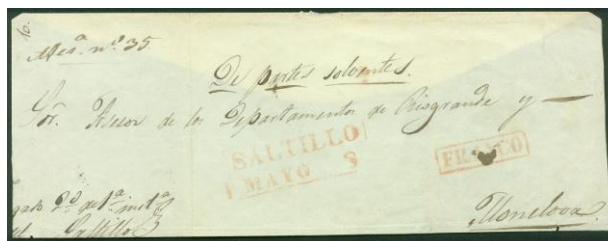 Mesa. nº 35.
De partes solventes.
Sor. Asesor de los Departamentos de Riogrande y
SALTILLO
MAYO 8
FRANCO
Monclova.
2º de 1ª instª
Saltillo